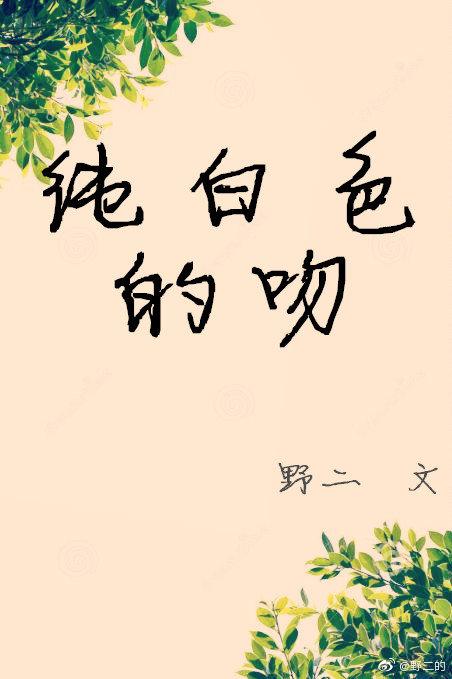 纯白色
的吻
野二 文
@野二的